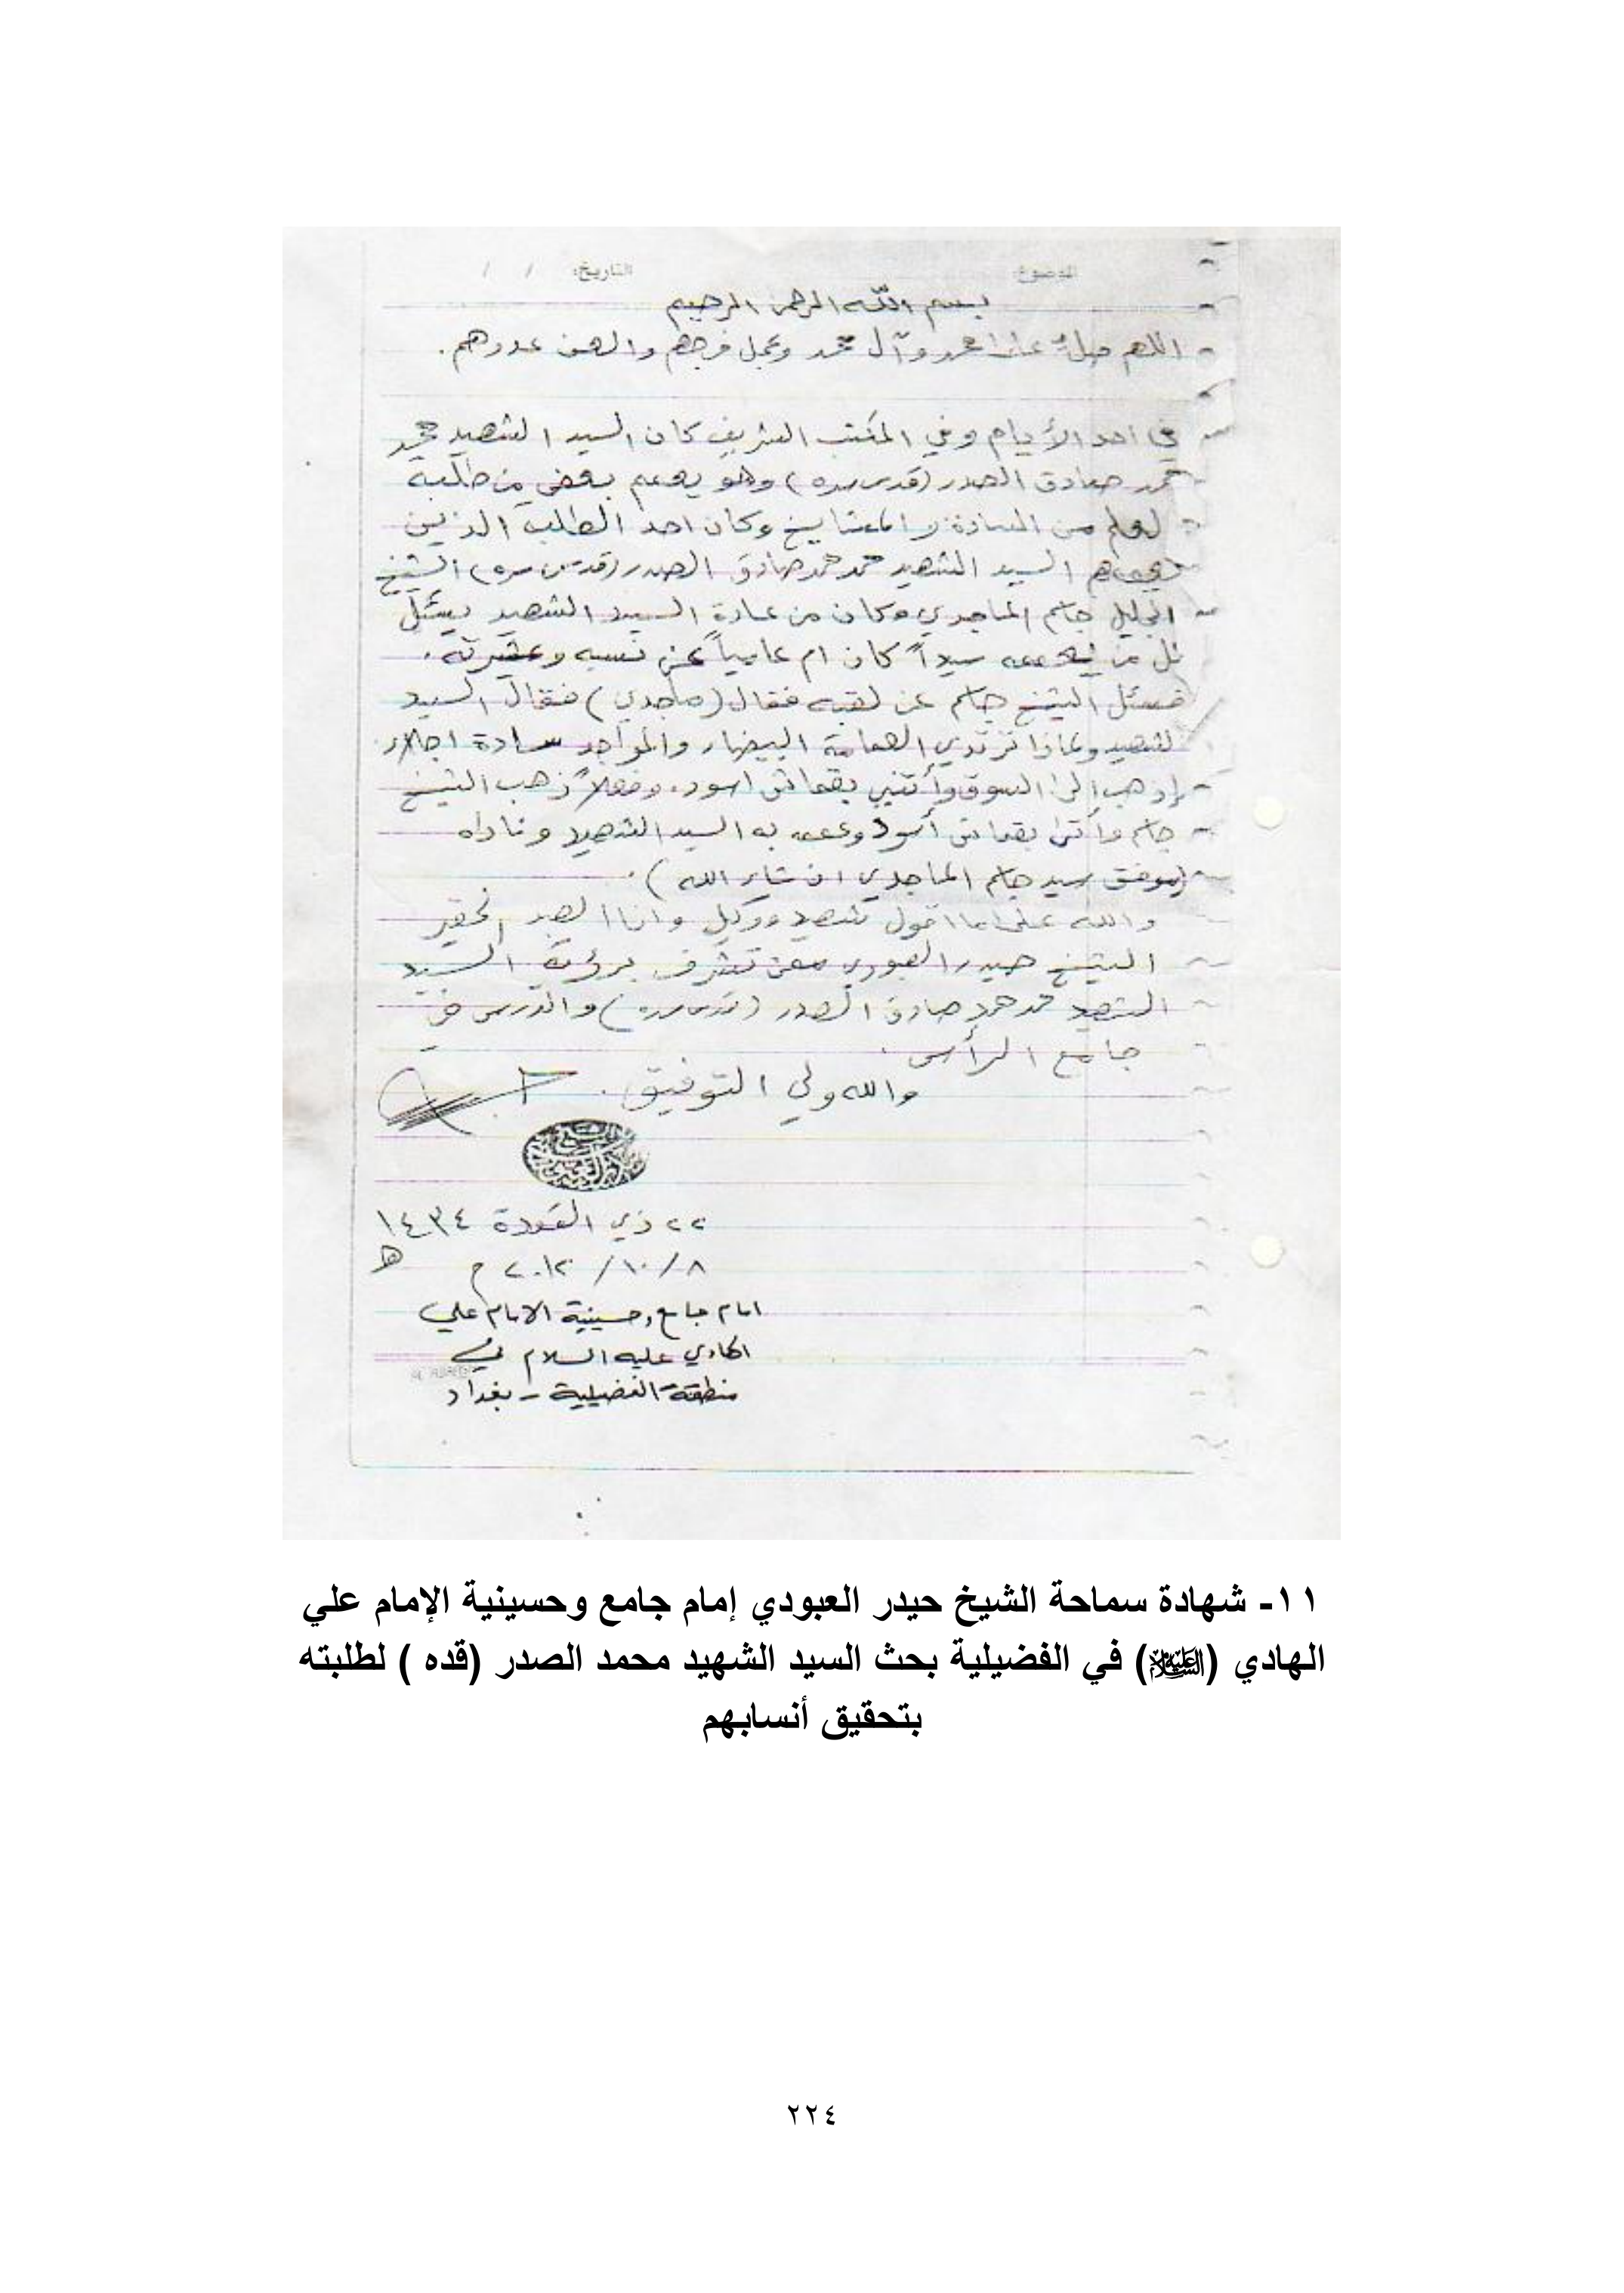 الموضوع: التاريخ: / /
بسم الله الرحمن الرحيم
اللهم صلِ على محمد وآل محمد وعجل فرجهم والعن عدوهم.
في احد الأيام وفي المكتب الشريف كان السيد الشهيد محمد
محمد صادق الصدر (قدس سره) وهو يعمم بعض من طلبة
لعلم من السادة والمشايخ وكان احد الطلبة الذين
يعممهم السيد الشهيد محمد محمد صادق الصدر (قدس سره) الشيخ
الجليل جاسم الماجدي وكان من عادة السيد الشهيد يسئل
كل من يعممه سيداً كان ام عامياً عن نسبه وعشيرته.
فسئل الشيخ جاسم عن لقبه فقال (ماجدي) فقال السيد
لشهيد ولماذا ترتدي العمامة البيضاء والمواجد سادة اجلاء
إذهب إلى السوق وأتني بقماش اسود. وفعلاً ذهب الشيخ
جاسم وأتى بقماش أسود وعممه به السيد الشهيد وناداه
(موفق سيد جاسم الماجدي ان شاء الله).
والله على ما اقول شهيد ووكيل وانا العبد الحقير
الشيخ حيدر العبودي ممن تشرف برؤية السيد
الشهيد محمد محمد صادق الصدر (قدس سره) والدرس في
جامع الرأس.
والله ولي التوفيق.
٢٢ ذي القعدة ١٤٣٤
هـ
٨/١٠/٢٠١٢ م
امام جامع وحسينية الامام علي
الهادي عليه السلام في
منطقة الفضيلية - بغداد
١١- شهادة سماحة الشيخ حيدر العبودي إمام جامع وحسينية الإمام علي
الهادي (عليه السلام) في الفضيلية بحث السيد الشهيد محمد الصدر (قده ) لطلبته
بتحقيق أنسابهم
٢٢٤